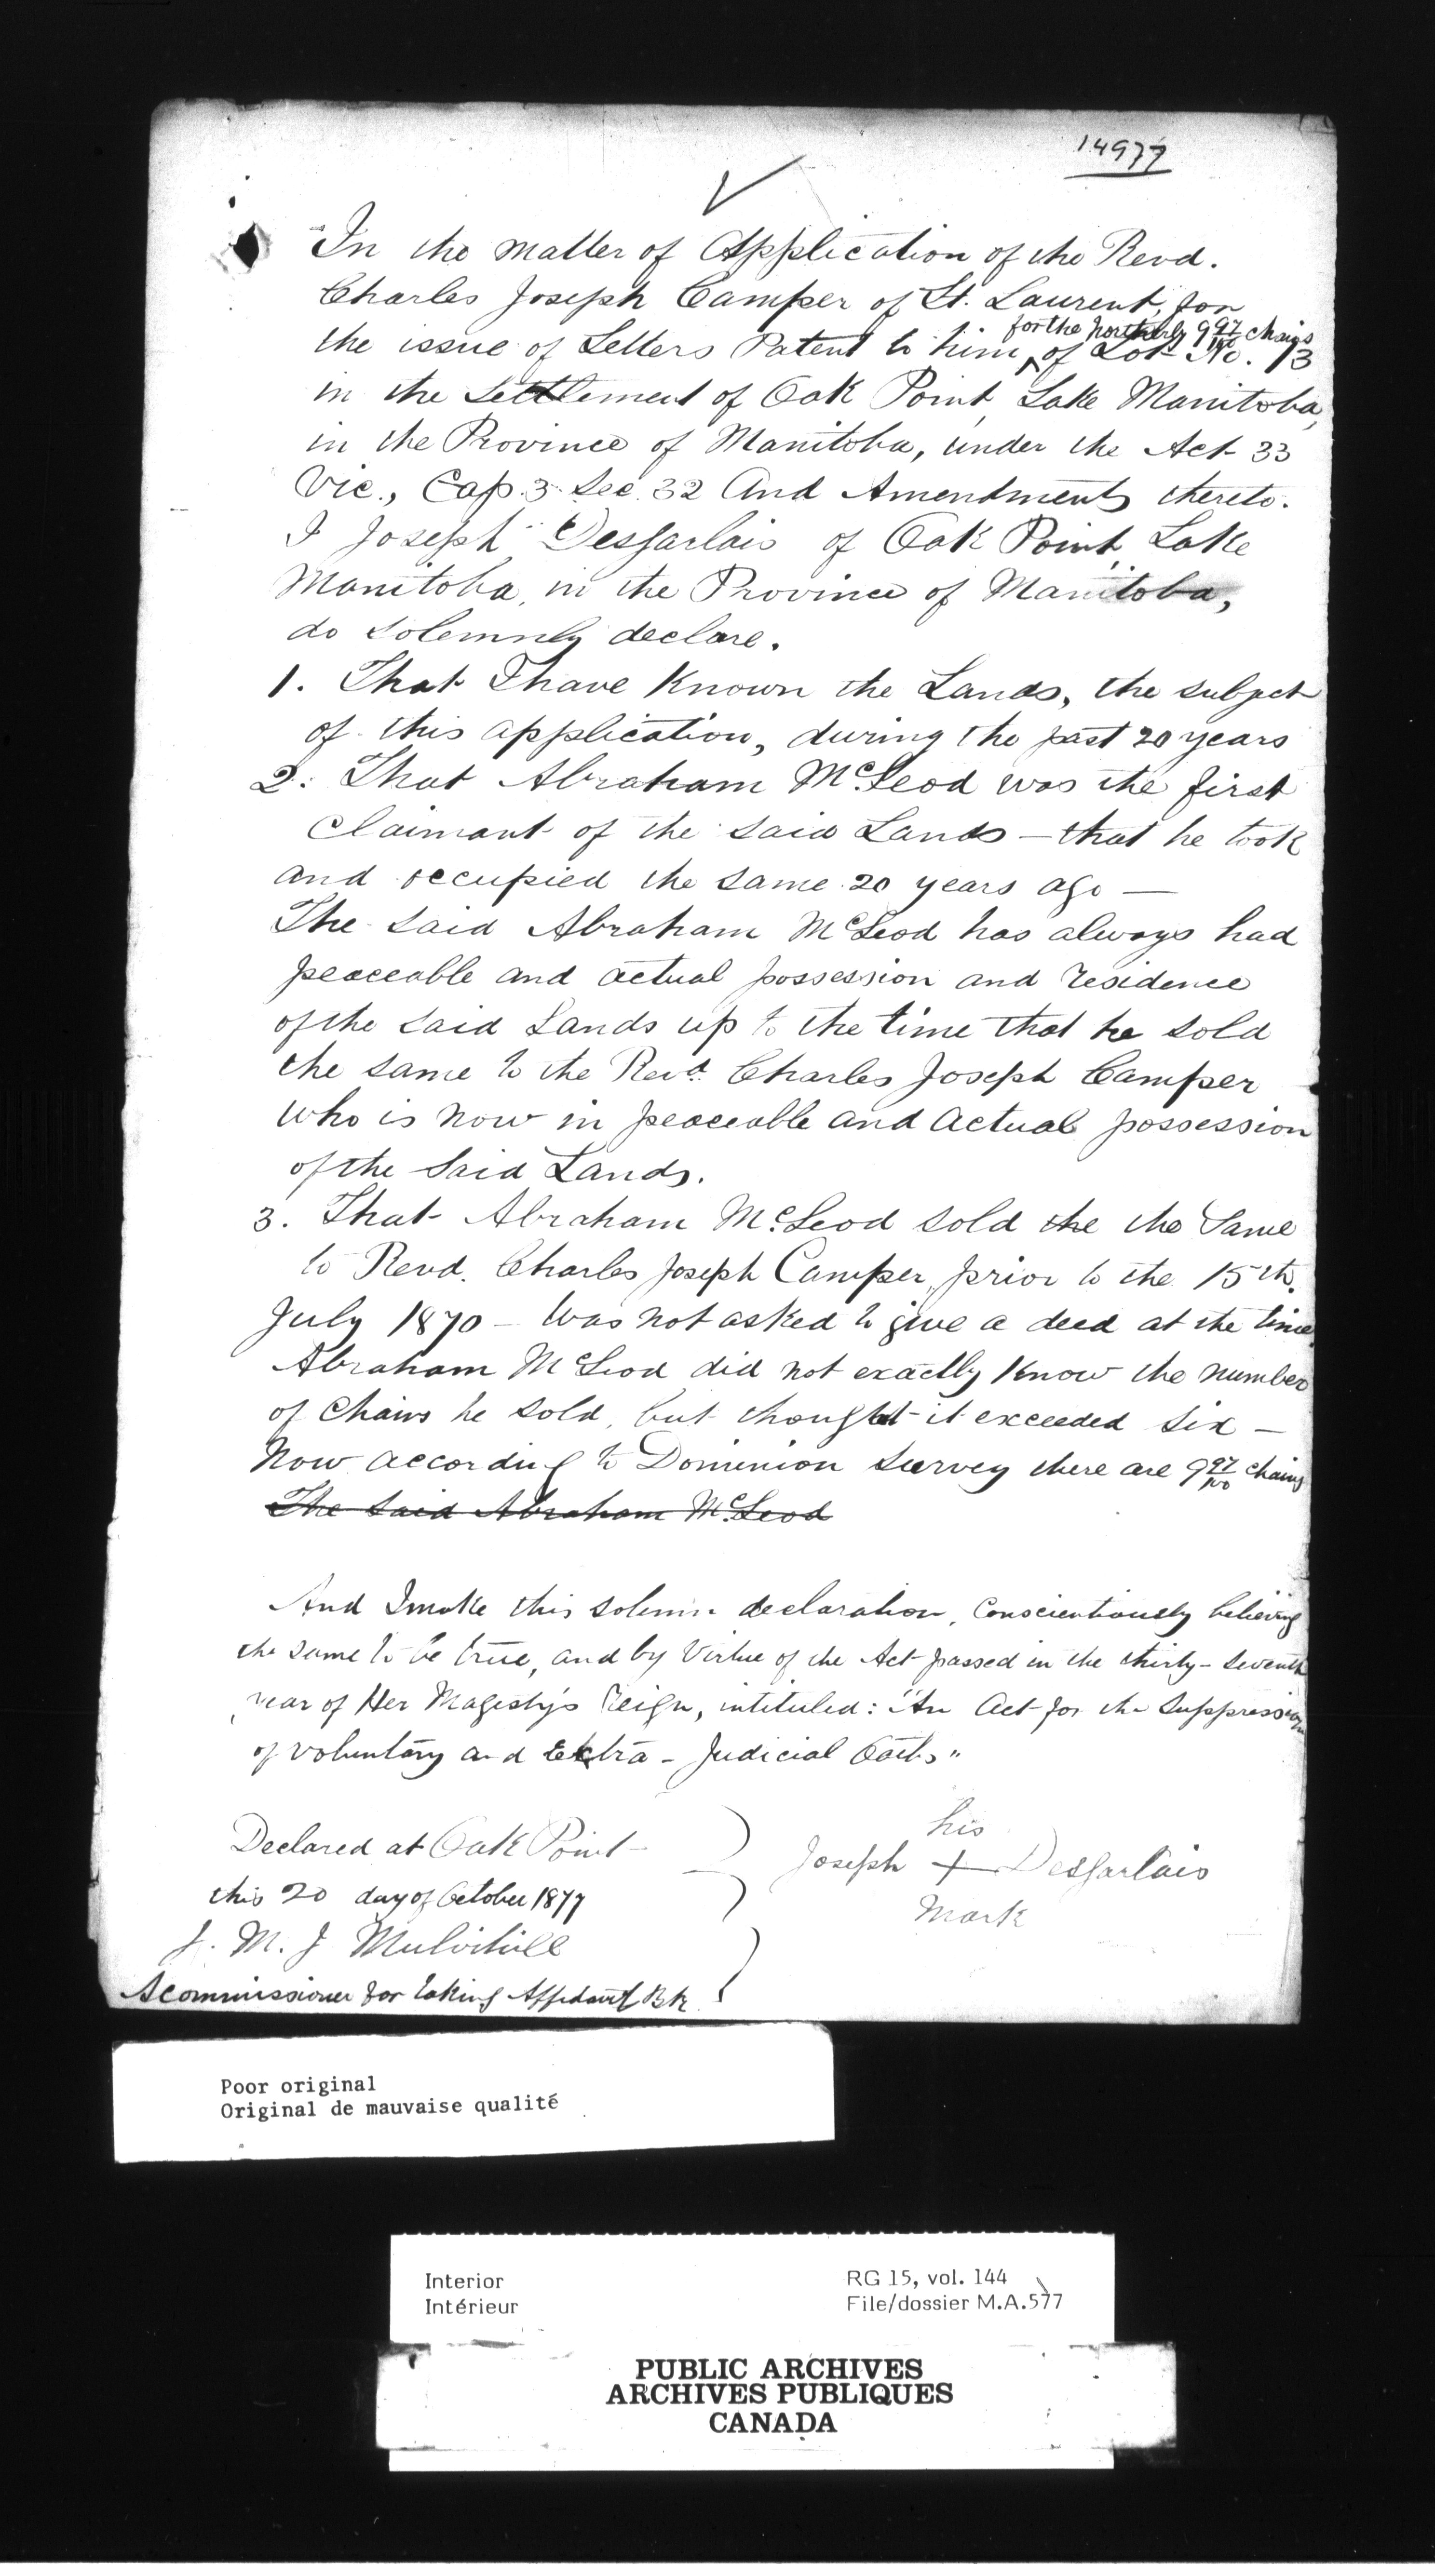 14977
In the matter of Application of the Revd.
Charles Joseph Camper of St. Laurent, for
for the northerly 9 97/100 chains
the issue of Letters Patent to him of Lot No. 13
in the Settlement of Oak Point, Lake Manitoba,
in the Province of Manitoba, under the Act 33
Vic., Cap. 3 Sec. 32 And Amendments thereto.
I Joseph Desjarlais of Oak Point, Lake
Manitoba, in the Province of Manitoba,
do solemnly declare.
1. That I have Known the Lands, the subject
of this application, during the past 20 years
2. That Abraham McLeod was the first
Claimant of the said Lands — that he took
and occupied the same 20 years ago —
The said Abraham McLeod has always had
peaceable and actual possession and residence
of the said Lands up to the time that he sold
the same to the Revd. Charles Joseph Camper
who is now in peaceable and actual possession
of the said Lands.
3. That Abraham McLeod sold the the Same
to Revd. Charles Joseph Camper, prior to the 15th.
July 1870 — was not asked to give a deed at the time
Abraham McLeod did not exactly Know the number
of Chains he sold, but thought it exceeded six —
Now according to Dominion survey there are 9 97/100 chains
The said Abraham McLeod
And I make this solemn declaration, Conscientiously believing
the same to be true, and by Virtue of the Act passed in the thirty-seventh
year of Her Magesty's reign, intituled: "An Act for the Suppression
of voluntary and Extra-Judicial Oaths"
his
Declared at Oak Point
Joseph + Desjarlais
this 20 day of October 1877
Mark
J. M. J Mulvihill
A commissioner for taking Affidavit B.R.
Poor original
Original de mauvaise qualité
Interior
Intérieur
RG 15, vol. 144
File/dossier M.A.577
PUBLIC ARCHIVES
ARCHIVES PUBLIQUES
CANADA